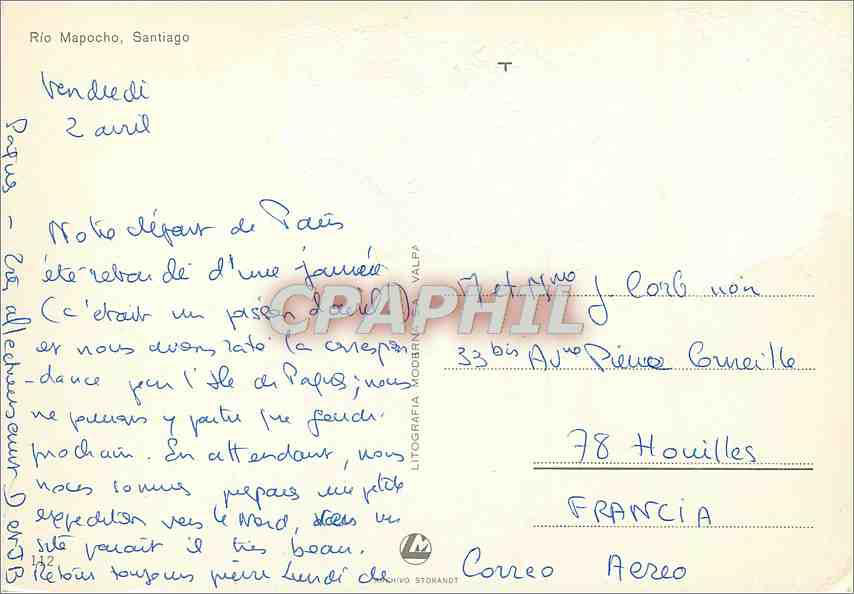 Río Mapocho, Santiago
Vendredi
2 avril
Notre départ de Paris
été retardé d'une journée
(c'était un poisson d'avril)
et nous avons raté la correspon
-dance pour l'Ile de Paques; nous
ne pouvons y partir que jeudi
prochain. En attendant, nous
nous sommes préparé une petite
expédition vers le Nord, dans un
site parait il très beau.
Retour toujours prévu Lundi de
Paques - Très affectueusement D et JB
112
LITOGRAFIA MODERNA S.A. VALPA
LM
ARCHIVO STORANDT
CPAPHIL
M et Mme J.
33bis Avnue Pierre Corneille
78 Houilles
FRANCIA
Correo Aereo